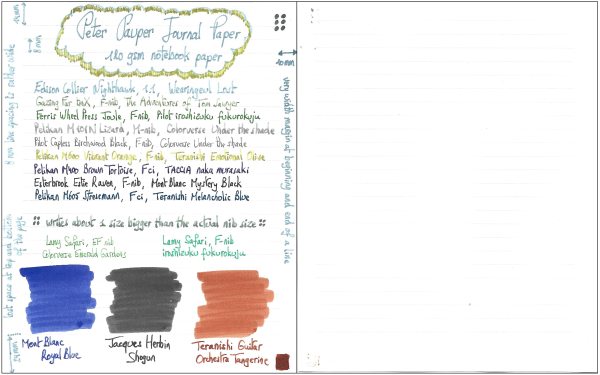 Peter Pauper Journal Paper
120 gsm notebook paper
8 mm
10mm
8 mm line spacing is rather wide
very width margin at beginning and end of a line
Edison Collier Nighthawk, 1.1, Wearingeul Lost
Ferris Wheel Press Joule, F-nib, Pilot iroshizuku fukurokuju
Pelikan M101N Lizard, M-nib, Colorverse Under the shade
Pilot Capless Birchwood Black, F-nib, Colorverse Under the shade
Pelikan M600 Vibrant Orange, F-nib, Teranishi Emotional Olive
Pelikan M800 Brown Tortoise, F ci, TACCIA naka murasaki
Esterbrook Estie Raven, F-nib, Mont Blanc Mystery Black
Pelikan M605 Stresemann, F ci, Teranishi Melancholic Blue
writes about 1 size bigger than the actual nib size
Lamy Safari, EF nib
Colorverse Emerald Gardens
Lamy Safari, F-nib
iroshizuku fukurokuju
lost space at top and bottom
of the page
Mont Blanc
Royal Blue
Jacques Herbin
Shogun
Teranishi Guitar
Orchestra Tangerine